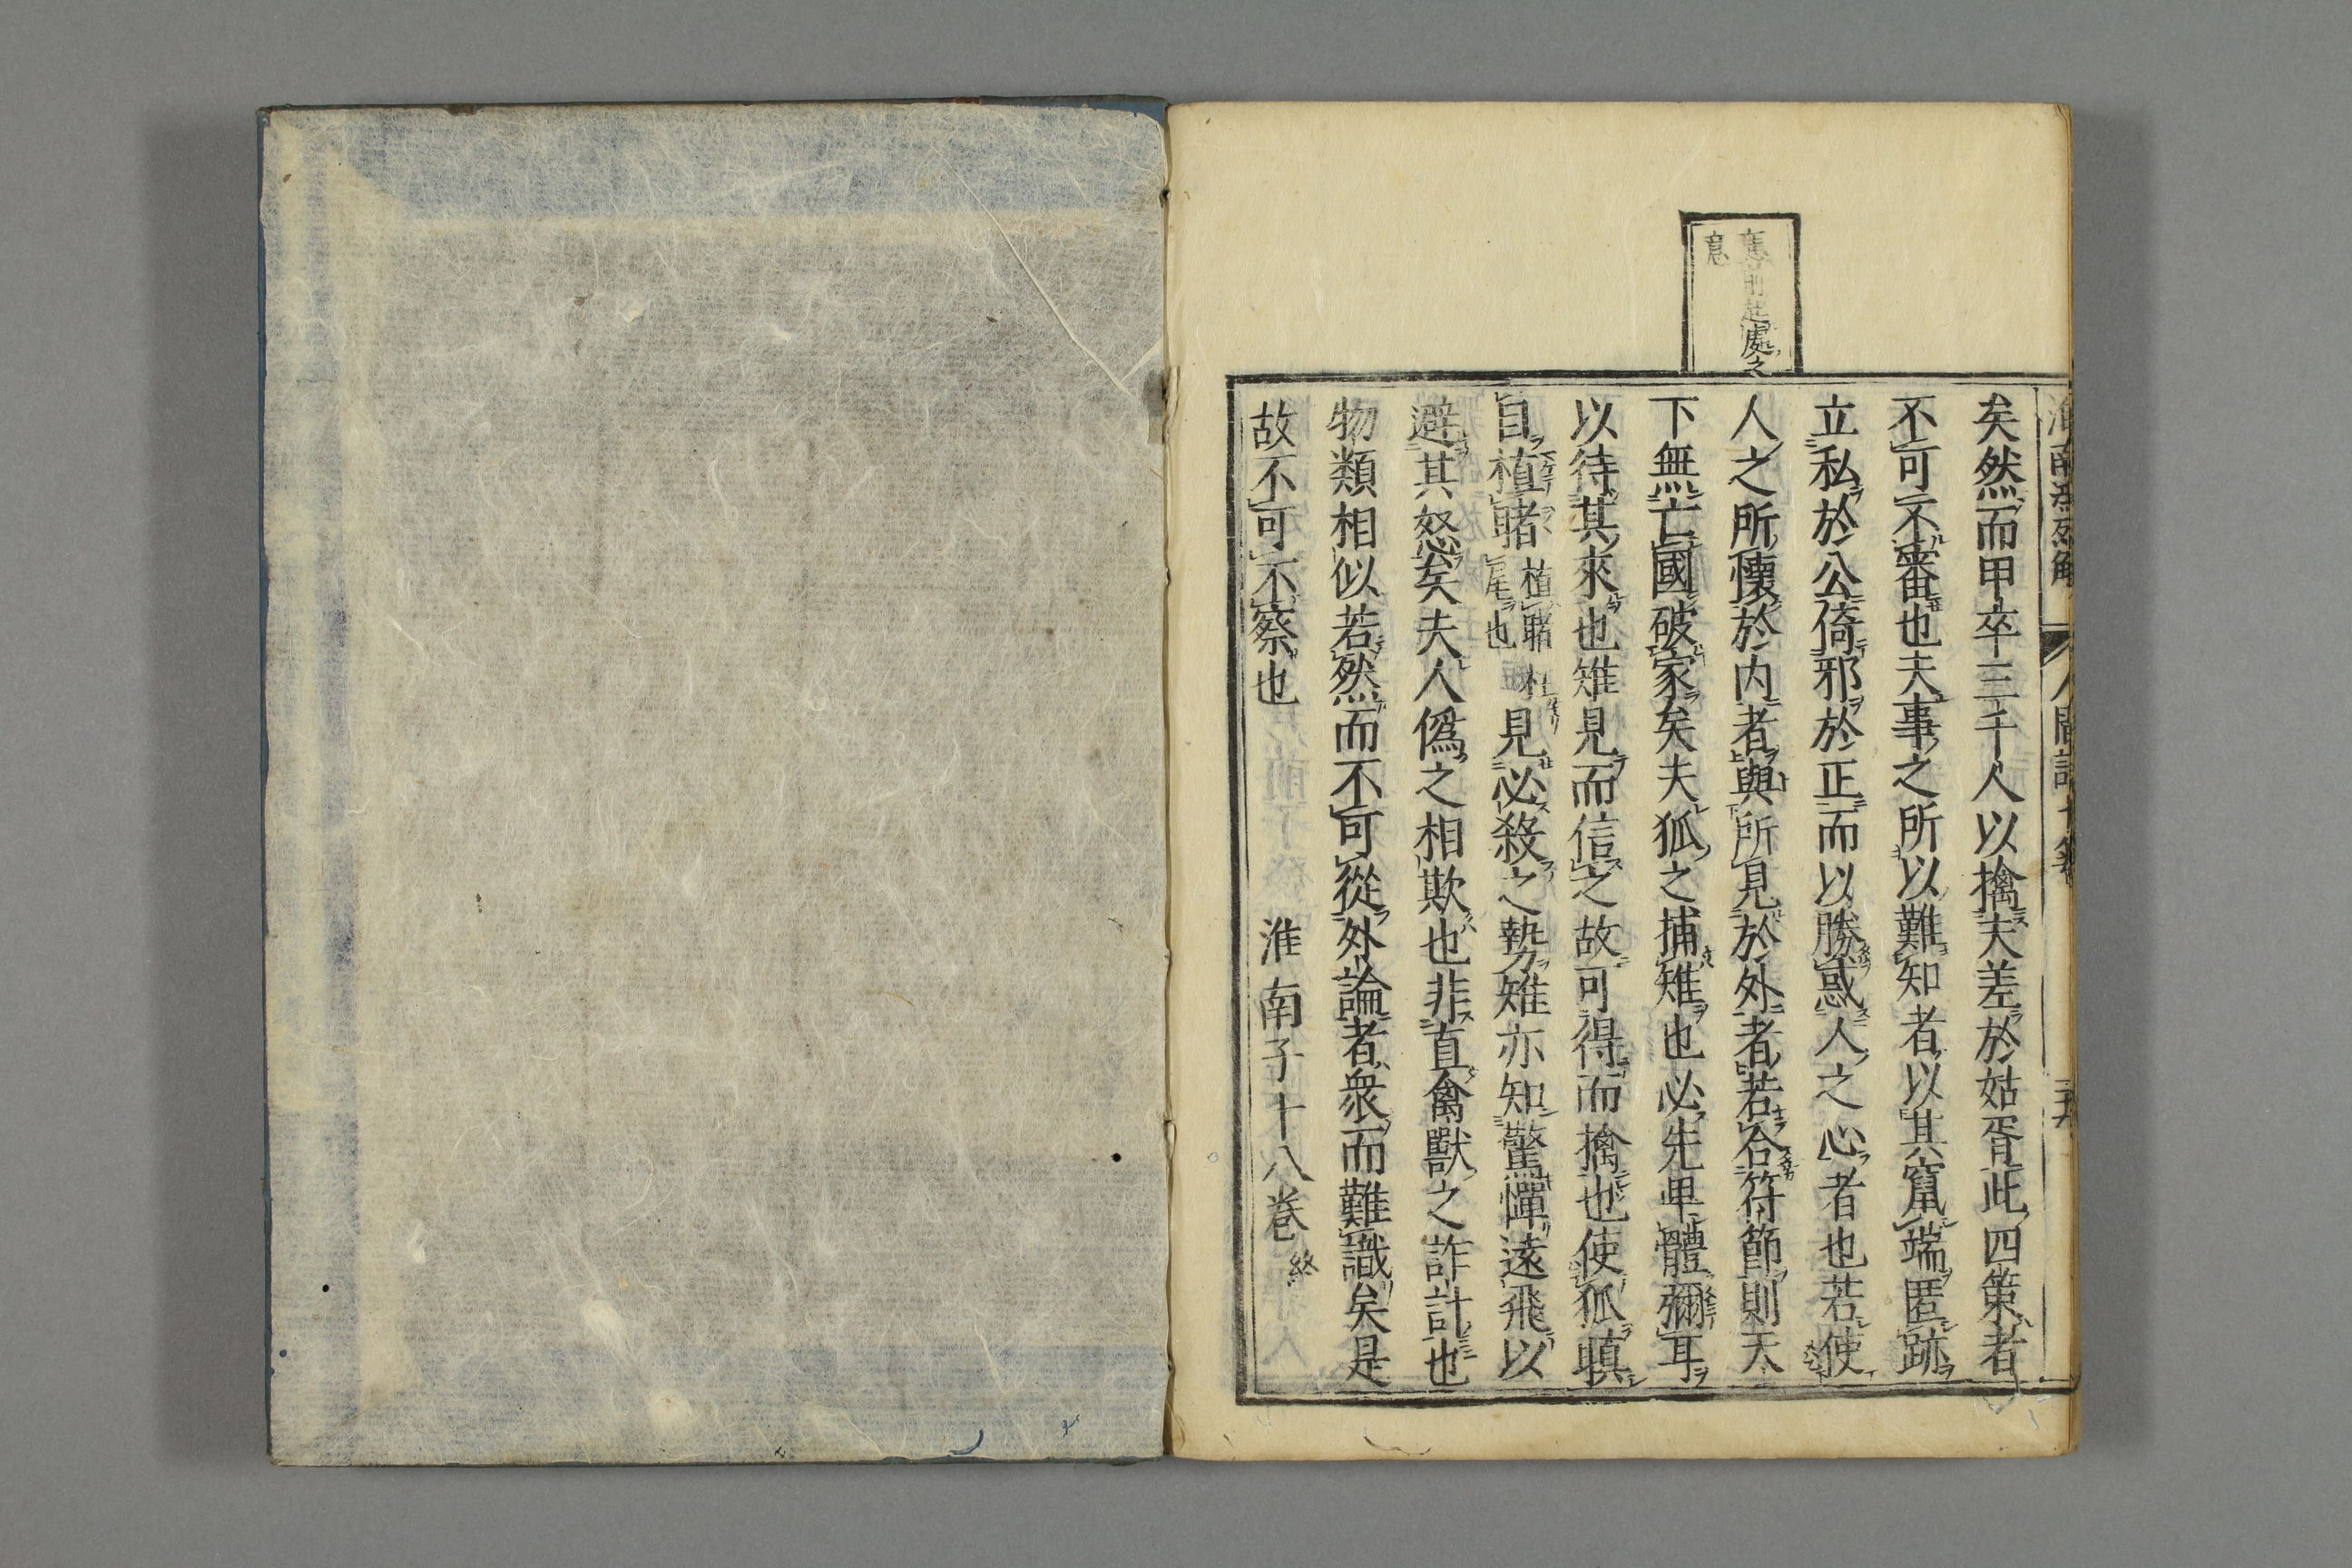 淮南鴻烈解 人間訓 十八卷
應前起處之
意
矣然而甲卒三千人以擒夫差於姑胥此四策者
不可不審也夫事之所以難知者以其竄端匿跡
立私於公倚邪於正而以勝惑人之心者也若使
人之所懷於內者與所見於外者若合符節則天
下無亡國破家矣夫狐之捕雉也必先卑體彌耳
以待其來也雉見而信之故可得而擒也使狐瞋
目植睹植睹柱尾也見必殺之勢雉亦知驚憚遠飛以
避其怒矣夫人僞之相欺也非直禽獸之詐計也
物類相似若然而不可從外論者衆而難識矣是
故不可不察也
淮南子十八卷終